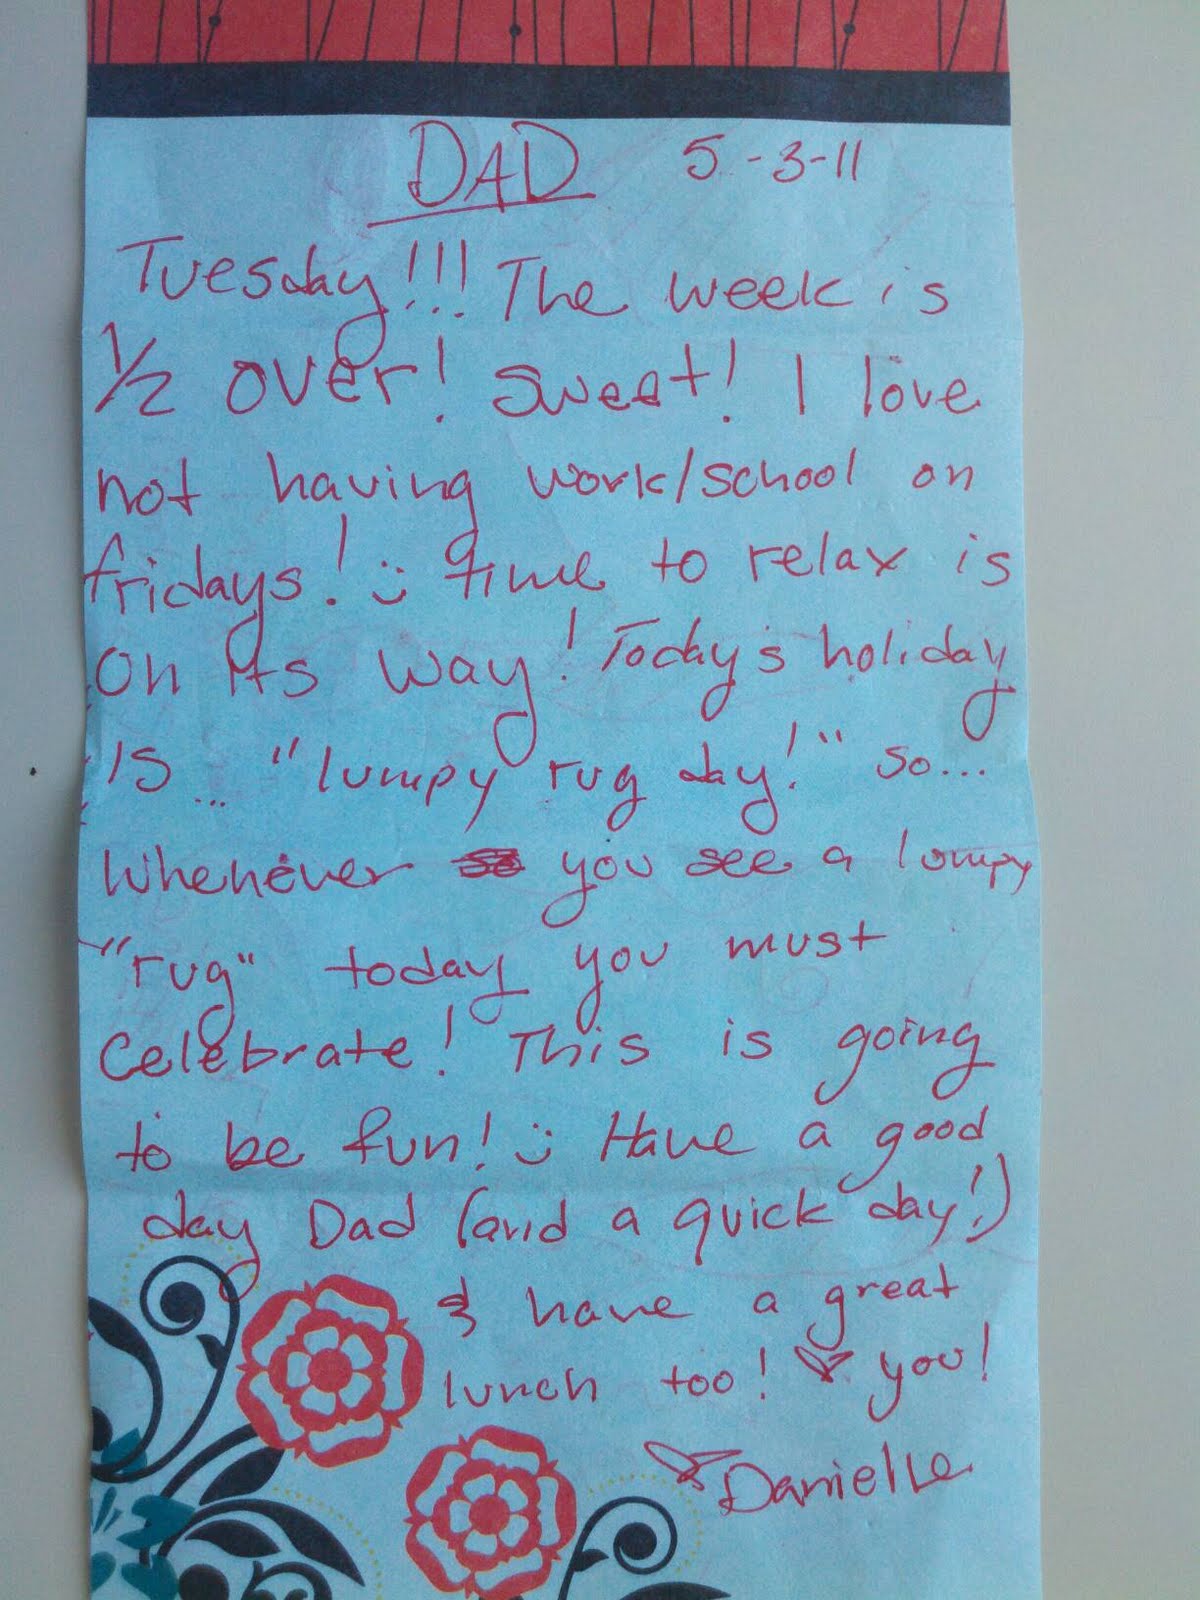 DAD 5-3-11
Tuesday!!! The week is
1/2 over! Sweet! I love
not having work/school on
fridays! :) time to relax is
on its way! Today's holiday
is... "lumpy rug day!" so...
Whenever you see a lumpy
"rug" today you must
Celebrate! This is going
to be fun! :) Have a good
day Dad (and a quick day!)
& have a great
lunch too! ♥ you!
♥ Danielle